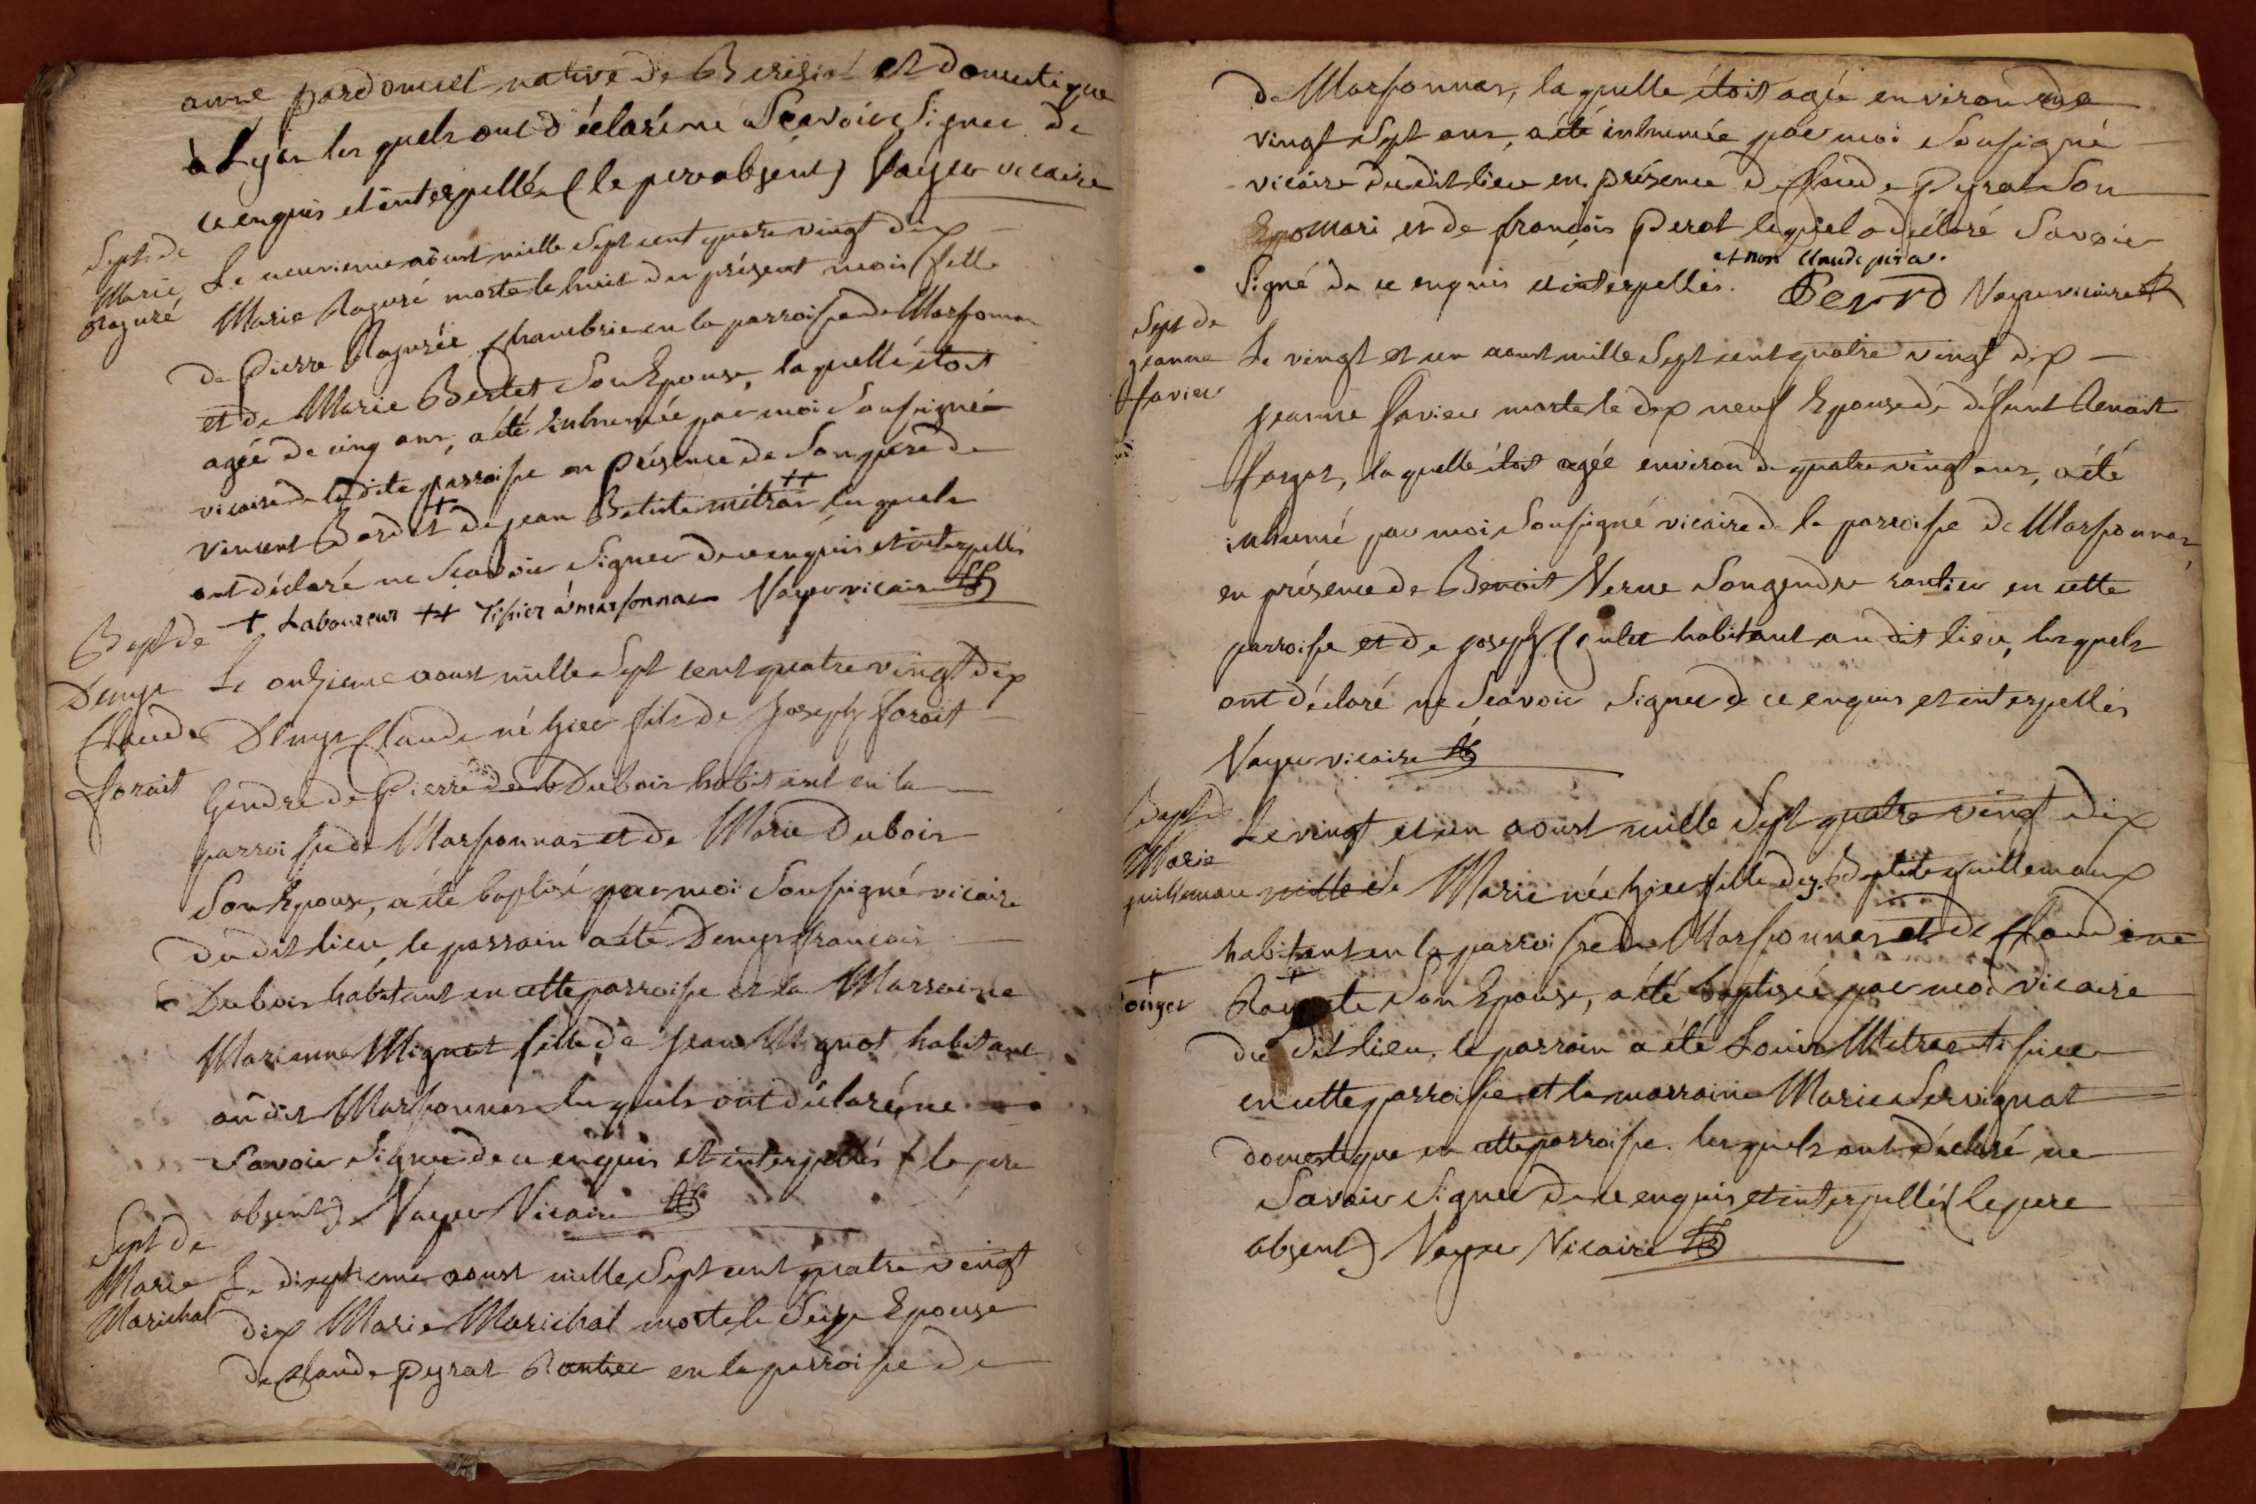 anne pardonnet native de Beresiat et domestique
à Lyon les quels ont déclaré ne Scavoir Signer de
ce enquis et interpellés (le pere absent) Vayer vicaire
Sept. de
Marie
Raguré
Le neuvieme aoust mille Sept cent quatre vingt dix
Marie Raguré morte le huit du présent mois fille
de Pierre Raguré en la parroisse de Marsonnas
et de Marie Bertet Son Epouse, laquelle étoit
agée de cinq ans, a été inhumée par moi Soussigné
vicaire de la dite parroisse en présence de Son pere de
Vincent Bardet + de jean Batiste mitras ++ les quels
ont déclaré ne Scavoir Signer de ce enquis et interpellés
+ Laboureur ++ Tissier à marsonnas Vayer vicaire
Bapt de
Denys
Claude
foroit
Le onzieme aoust mille Sept cent quatre vingt dix
Denys Claude né hier fils de Joseph foroit
Gendre de Pierre Dubois habitant en la
parroisse de Marsonnas et de Marie Dubois
Son Epouse, a été baptisé par moi Soussigné vicaire
du dit lieu, le parrain a été Denys francois
Dubois habitant en cette parroisse et la Marraine
Marianne Mignot fille de Jean Mignot habitant
au dit Marsonnas les quels ont déclaré ne
Savoir Signer de ce enquis et interpellés (le pere
absent) Vayer Vicaire
Sept de
Marie
Marichal
Le dixseptieme aoust mille Sept cent quatre vingt
dix Marie Marichal morte le Seize Epouse
de Claude Pyrat Rantier en la parroisse de
de Marsonnas, la quelle étoit agée environ de
vingt Sept ans, a été inhumée par moi Soussigné
vicaire dudit lieu en présence de Claude Pyrat Son
Epo mari et de françois Perot lequel a déclaré Savoir
et non Claude pira.
Signé de ce enquis et interpellés. Perrod Vayer vicaire
Sept de
jeanne
favier
Le vingt et un aoust mille Sept cent quatre vingt dix
jeanne favier morte le dix neuf Epouse de défunt Benoit
forgas, la quelle étoit agée environ de quatre vingt ans, a été
inhumé par moi Soussigné vicaire de la parroisse de Marsonnas
en présence de Benoit Verne Son gendre rantier en cette
parroisse et de joseph habitant au dit lieu, les quels
ont déclaré ne Scavoir Signer de ce enquis et interpellés
Vayer vicaire
Bapt de
Marie
guillemau
Le vingt et un aoust mille Sept quatre vingt dix
mille Se Marie née hier fille de j. Baptiste guillemaux
habitant en la parroisse de Marsonnas et de Claudine
+
onger
+ Son Epouse, a été baptisée par moi vicaire
du dit lieu, le parrain a été Louis Mitras tissier
en cette parroisse et la marraine Marie Servignat
domestique en cette parroisse. les quels ont déclaré ne
Savoir Signer de ce enquis et interpellés (le pere
absent) Vayer Vicaire